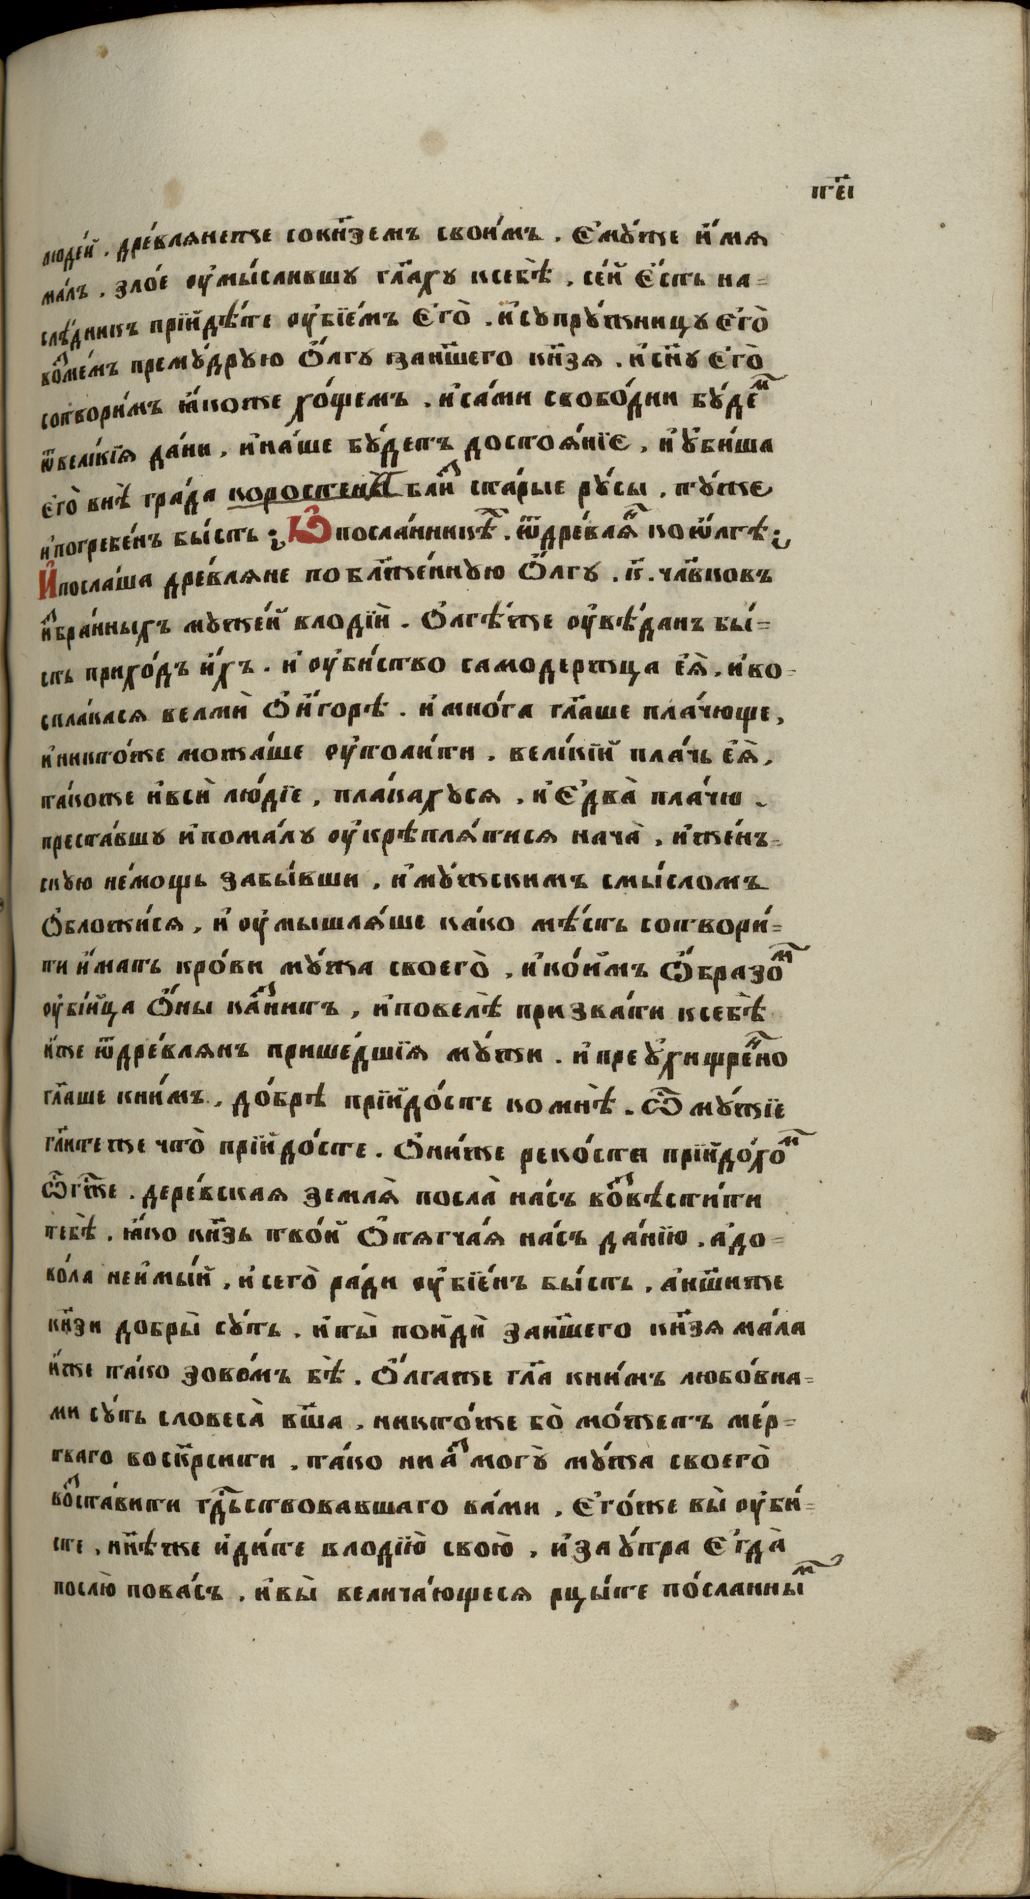 пе҃і
люде́й . дре́влянеже сокн҃земъ свои́мъ . є҆му́же и҆́мя
ма́лъ . зло́е оу҆мы́слившу гл҃аху ксебѣ̀ . се́й є҆́сть на=
слѣ́дникъ прїйдѣ́те оу҆бїе́мъ є҆го̀ . и҆супру́жницу є҆го̀
во́змемъ прему́друю ѻ҆́лгу занш҃его кн҃зя . и҆сн҃у є҆го̀
сотвори́мъ ꙗ҆́коже хо́щемъ . и҆са́ми свобо́дни бу́демъ
ѿвели́кїя да́ни . и҆на́ше бу́детъ достоя́нїе , и҆у҆би́ша
є҆го̀ внѣ̀ гра́да коростены̀ близ̾ ста́рые ру́сы . ту́же
и҆погребе́нъ бы́сть : Ѡ҆посла́нникѣх . ѿдре́влян кѡ҆́лгѣ :
И҆посла́ша дре́вляне побл҃же́нную ѻ҆́лгу . к҃ . чл҃вковъ
и҆збра́нныхъ муже́й влодїи̑ . ѻ҆́лгѣже оу҆вѣ́данъ бы́=
сть прихо́дъ и҆́хъ . и҆ оу҆би́ство самоде́ржца є҆я̀ . и҆во=
спла́кася велмѝ ѻ҆и҆́горѣ . и҆мно́га гл҃аше пла́чюще ,
и҆никто́же можа́ше оу҆толи́ти . вели́кїй пла́чь є҆я̀ ,
та́коже и҆всѝ лю́дїе , пла́кахуся . и҆є҆два̀ пла́чю
преста́вшу и҆пома́лу оу҆крѣпля́тися нача̀ . и҆же́нъ=
скую не́мощь забы́вши , и҆му́жскимъ смы́сломъ
ѻ҆бложи́ся , и҆ оу҆мышля́ше ка́ко мѣ́сть сотвори́=
ти и҆́мать кро́ви му́жа своего̀ , и҆ко́имъ ѻ҆́бразом
оу҆бі́йца ѻ҆́ны казни́тъ , и҆повелѣ̀ призва́ти ксебѣ̀
и҆́же ѿдре́влянъ прише́дшїя му́жи . и҆преу҆хищре́нно
гл҃аше кни́мъ , до́брѣ прїйдо́сте комнѣ̀ . ѽ му́жїе
гл҃итеже что̀ прїйдо́сте . ѻ҆ни́же реко́ста прїйдо́хом
ѽгж҃е . дере́вская земля̀ посла̀ на́съ возвѣсти́ти
тебѣ̀ . ꙗ҆́ко кн҃зь тво́й ѻ҆тягча́я на́съ да́нїю . а҆до=
во́ла неи҆мы́й . и҆сего̀ ра́ди оу҆бїе́нъ бы́сть . а҆нш҃иже
кн҃зи добры̀ су́ть . и҆ты̀ пойдѝ занш҃его кн҃зя ма́ла
и҆́же та́ко зово́мъ бѣ̀ . ѻ҆́лгаже гл҃а кни́мъ любо́вна=
ми су́ть словеса̀ вш҃а , никто́же бо̀ мо́жетъ ме́р=
тваго воскр҃сити . та́ко ни а҆́з могу̀ му́жа своего̀
возста́вити гд҃ьствовавшаго ва́ми , є҆го́же вы̀ оу҆би́=
сте , нн҃ѣже и҆ди́те влодїю̀ свою̀ , и҆зау́тра є҆гда̀
послю̀ пова́съ , и҆вы̀ велича́ющеся рцы́те по́сланным